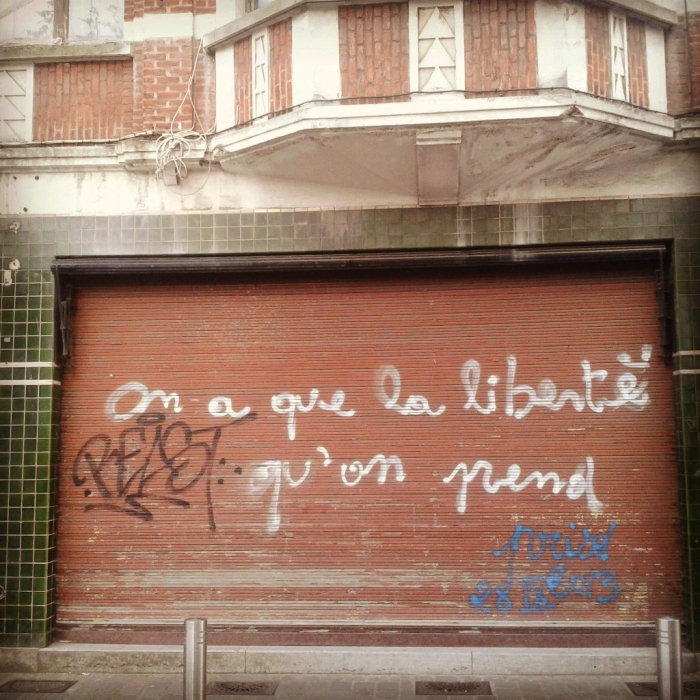 On a que la liberté
qu'on prend
prise